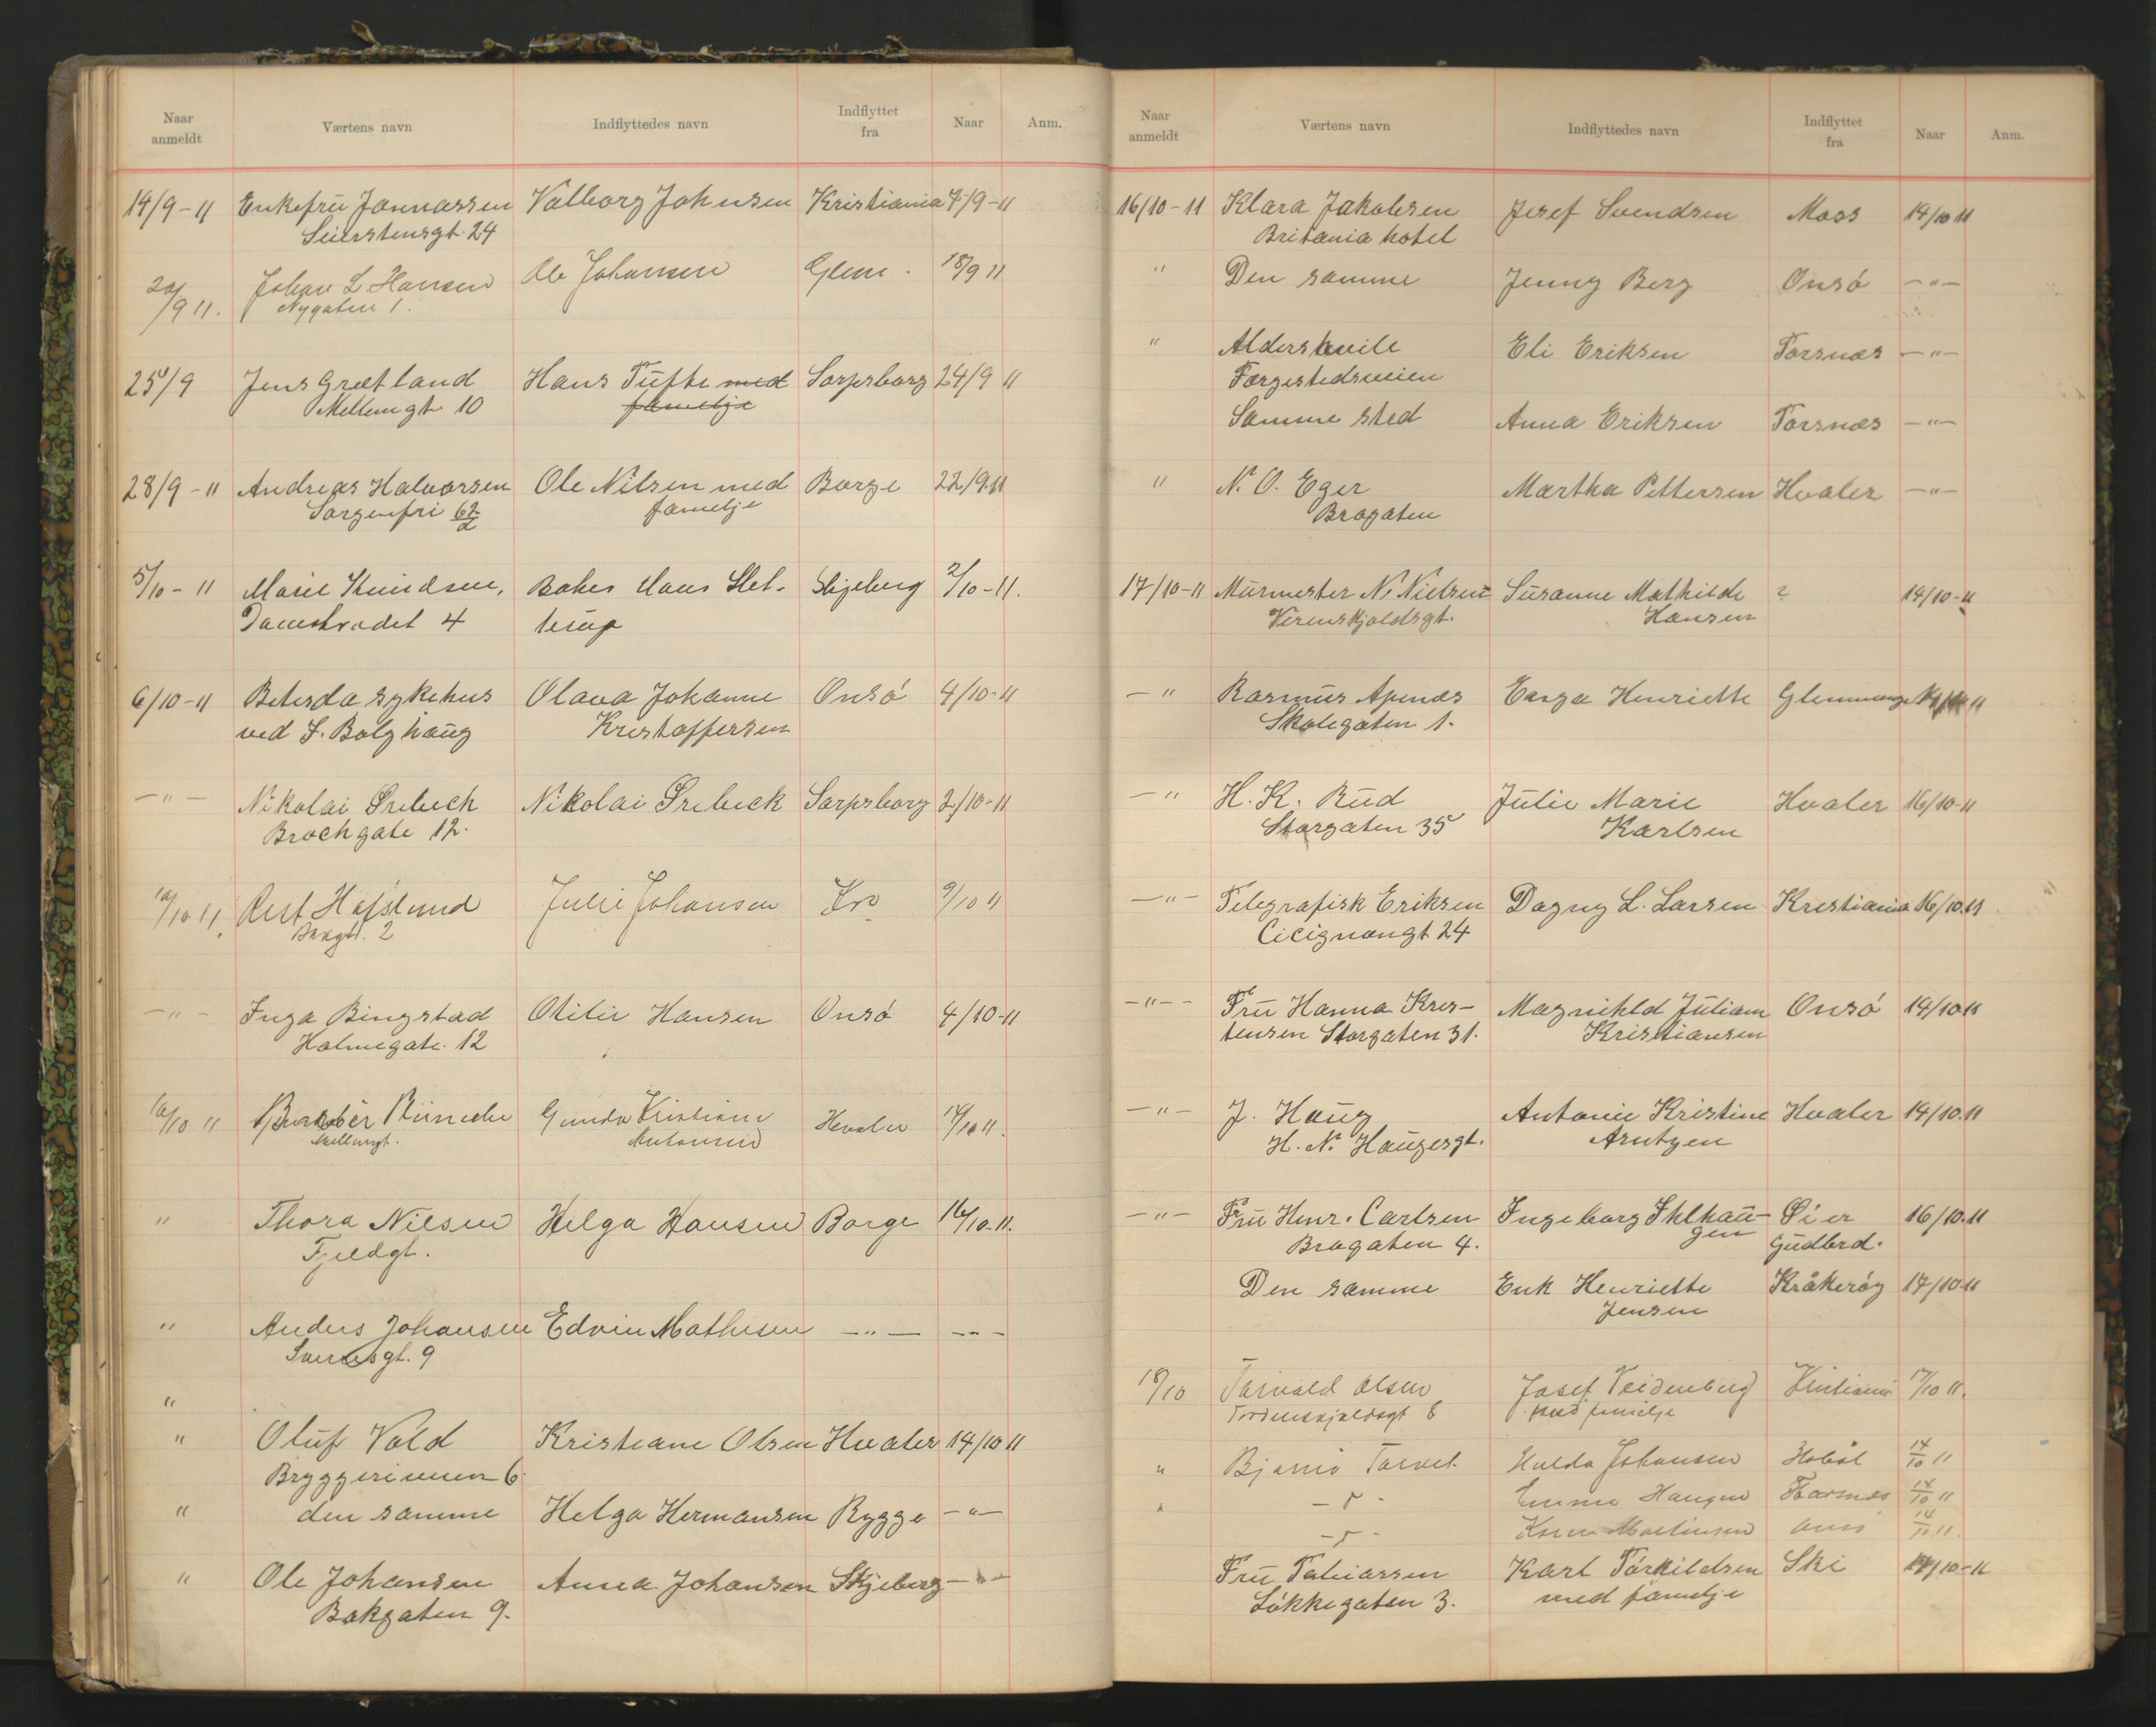 Naar anmeldt Værtens navn Indflyttedes navn Indflyttet fra Naar Anm.
14/9-11 Enkefru Jonnassen Valborg Johnsen Kristiania 7/9-11
Seierstensgt. 24
20/9 11. Johan L. Hansen Ole Johansen Glem. 18/9 11
Nygaten 1.
25/9 Jens Grætland Hans Tufte med Sarpsborg 24/9 11
Mellemgt 10 familje
28/9-11 Andreas Halvorsen Ole Nilsen med Borge 22/9 11
Sorgenfri 62/2 familje
5/10-11 Marie Knudsen, Baker Hans Slet- Skjeberg 2/10-11.
Damstrædet 4 terup
6/10-11 Betesda sykehus Olava Johanne Onsö 4/10-11
ved F. Bolghaug Kristoffersen
-"- Nikolai Srebeck Nikolai Srebeck Sarpsborg 2/10-11
Brochgate 12.
10/10 11. Rest Hafslund Julie Johansen Kra 9/10 11
2
-"- Inga Bingstad Otilie Hansen Onsö 4/10-11
Holmegate. 12
16/10 11 Gunda Kristiane Hvaler 14/10 11.
Mellemgt. Antonsen
" Thora Nilsen Helga Hansen Borge 16/10.11.
Fjeldgt.
" Anders Johansen Edvin Mathesen -"- -"-
Sverresgt. 9
"
" Oluf Vold Kristiane Olsen Hvaler 14/10 11
Bryggeriveien 6.
" den samme Helga Hermansen Rygge -"-
" Ole Johansen Anna Johansen Skjeberg -"-
Bakgaten 9.
Naar anmeldt Værtens navn Indflyttedes navn Indflyttet fra Naar Anm.
16/10-11 Klara Jakobsen Josef Svendsen Moss 14/10 11
Britania hotel
" Den samme Jenny Berg Onsö -"-
" Aldershvile Eli Eriksen Torsnæs -"-
Færgestedsveien
Samme sted Anna Eriksen Torsnæs -"-
" N. O. Eger Martha Pettersen Hvaler -"-
Brogaten
17/10-11 Murmester N. Nielsen Susanne Mathilde ? 14/10-11
Verenskjoldsgt. Hansen
-" Rasmus Apenæs Henriette 11
Skolegaten 1.
-" H. K. Rud Julie Marie Hvaler 16/10-11
Storgaten 35 Karlsen
-"- Telegrafisk Eriksen Dagny L. Larsen Kristiania 16/10.11
Cicignongt 24
-"- Fru Hanna Kris- Magnihld Juliane Onsö 14/10 11
tensen Storgaten 31. Kristiansen
-"- J. Haug Antonie Kristine Hvaler 14/10.11
H. N. Haugesgt. Arntzen
-"- Fru Henr. Carlsen Ingeborg Ihlhau- Öier 16/10.11
Brogaten 4. gen Gudbrd.
Den samme Enk Henriette Kråkeröy 17/10 11
Jensen
18/10 Torvald Olsen Josef Veidenberg Kristiania 17/10 11.
Tordenskjoldsgt 8 med familje
" Bjarnö Torvet Hulda Johansen Hobøl 14/10 11
" -"- Emma Hansen Torsnes 14/10 11
-"- Karen Martinsen Onsö 14/10 11.
Fru Tobiassen Karl Torkildsen Ski 17/10-11
Lökkegaten 3. med familje